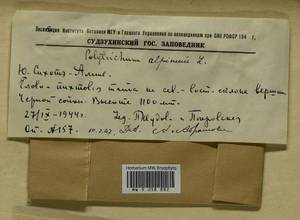 Экспедиция Института Ботаники МГУ и Главного Управления по заповедникам при СНК РСФСР 194 г.
СУДЗУХИНСКИЙ ГОС. ЗАПОВЕДНИК
Polytrichum alpinum L.
Ю. Сихотэ-Алинь.
Елово-пихтовая тайга на сев.-вост. склоне
Черной сопки. Высота 1100 мт.
27/IX-1944 г.
Оп. №157.
Herbarium MW, Bryophytes
MW 9 058 881